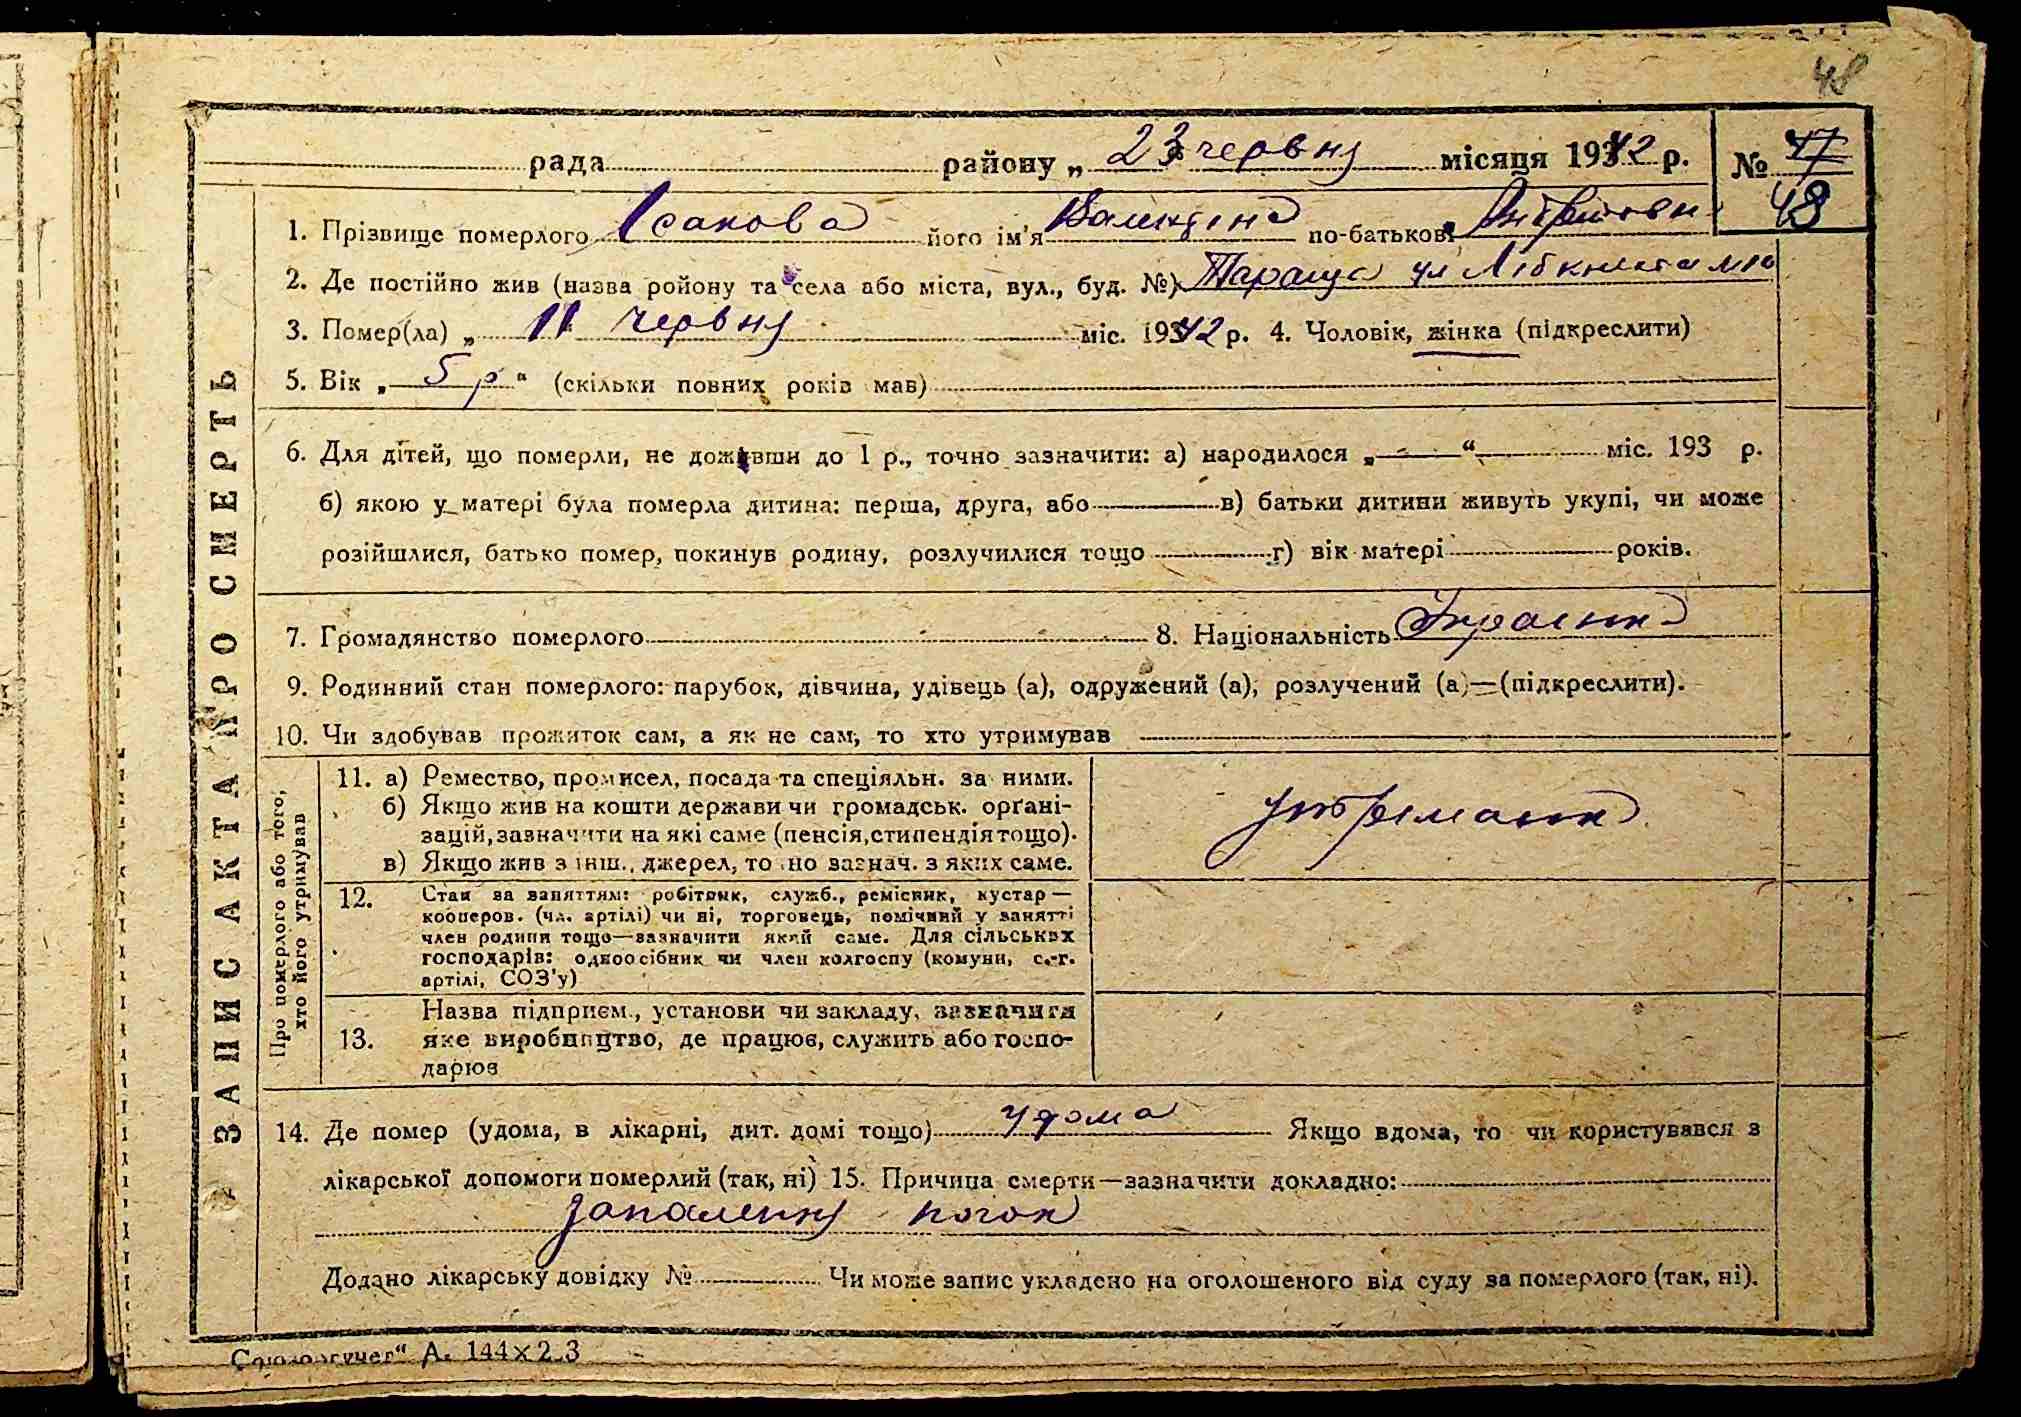 48
рада района „ 23 червня місяця 1942 р. № 47
48
1. Прізвище померлого Ісакова його ім'я Валентіна по-батькові
2. Де постійно жив (назва ройону та села або міста, вул., буд. №) Тараща ул Лібкнехта №10
3. Помер(ла) „ 11 червня міс. 1942 р. 4. Чоловік, жінка (підкреслити)
5. Вік „ 5 р “ (скільки повних років мав)
6. Для дітей, що померли, не доживши до 1 р., точно зазначити: а) народилося „ “ міс. 193 р.
б) якою у матері була померла дитина: перша, друга, або в) батьки дитини живуть укупі, чи може
розійшлися, батько помер, покинув родину, розлучилися тощо г) вік матері років.
7. Громадянство померлого 8. Національність Українка
9. Родинний стан померлого: парубок, дівчина, удівець (а), одружений (а), розлучений (а)—(підкреслити).
10. Чи здобував прожиток сам, а як не сам, то хто утримував
ЗАПИС АКТА ПРО СМЕРТЬ
Про померлого або того, хто його утримував
11. а) Ремество, промисел, посада та спеціяльн. за ними.
б) Якщо жив на кошти держави чи громадськ. орґані-
зацій, зазначити на які саме (пенсія, стипендія тощо).
в) Якщо жив з інш., джерел, точно зазнач. з яких саме.
утрєманка
12. Стан за заняттям: робітник, служб., ремісник, кустар—
кооперов. (чл. артілі) чи ні, торговець, помічний у занятті
член родини тощо—зазначити який саме. Для сільських
господарів: одноосібник чи член колгоспу (комуни, с.-г.
артілі, СОЗ'у)
Назва підприєм., установи чи закладу, зазначити
13. яке виробництво, де працює, служить або госпо-
дарює
14. Де помер (удома, в лікарні, дит. домі тощо) удома Якщо вдома, то чи користувався з
лікарської допомоги померлий (так, ні) 15. Причина смерти—зазначити докладно:
запалення
Додано лікарську довідку № Чи може запис укладено на оголошеного від суду за померлого (так, ні).
Союзоргучет“ Д. 144×2.3